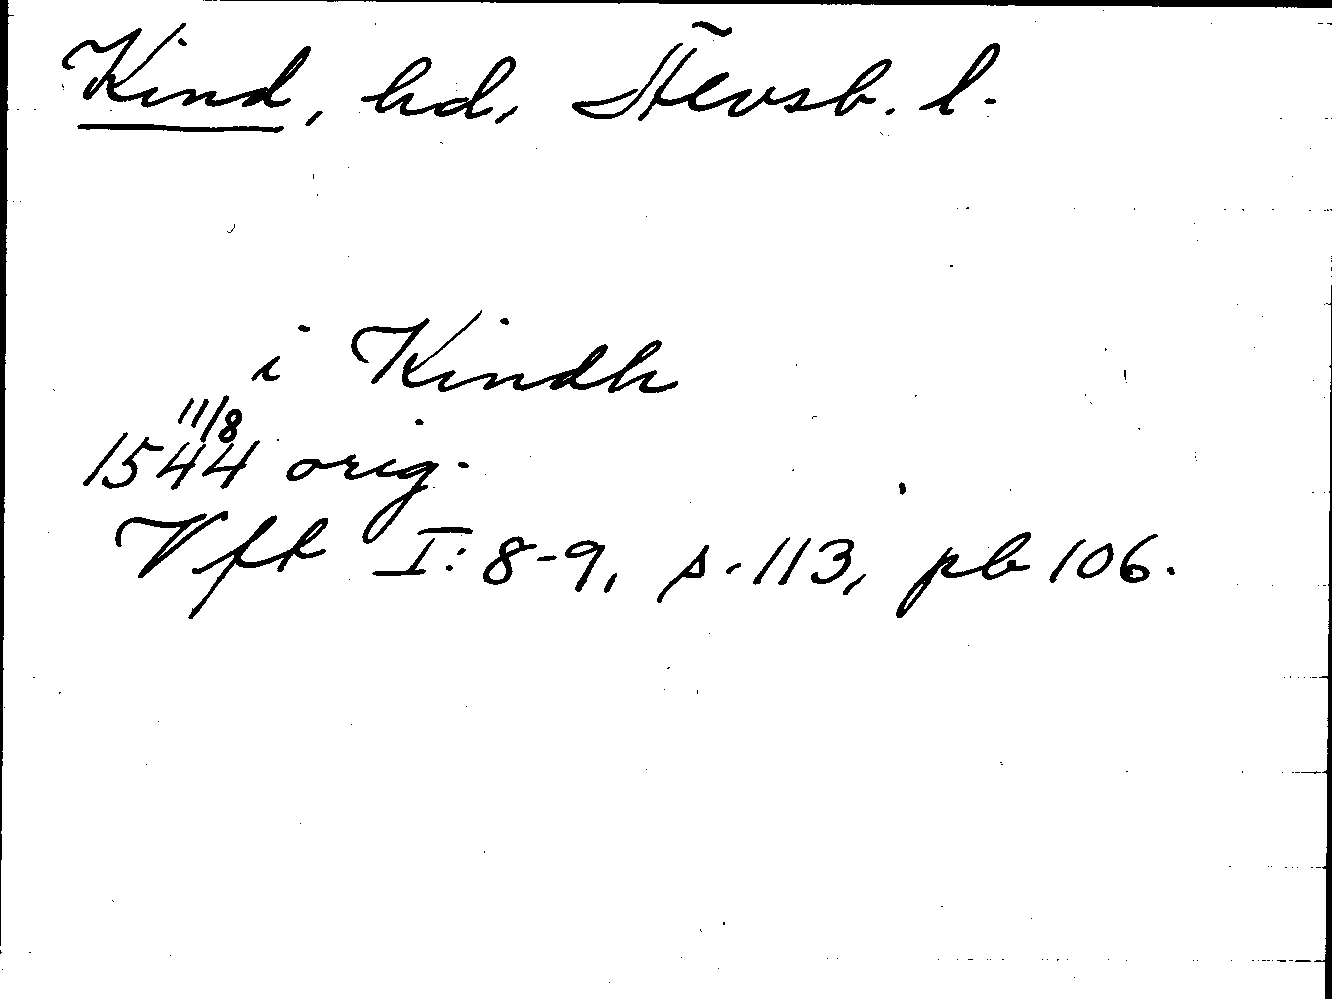 Kind, hd, Älvsb. l.
i Kindh
11/8
1544 orig.
Vft I: 8-9, s. 113, pb 106.